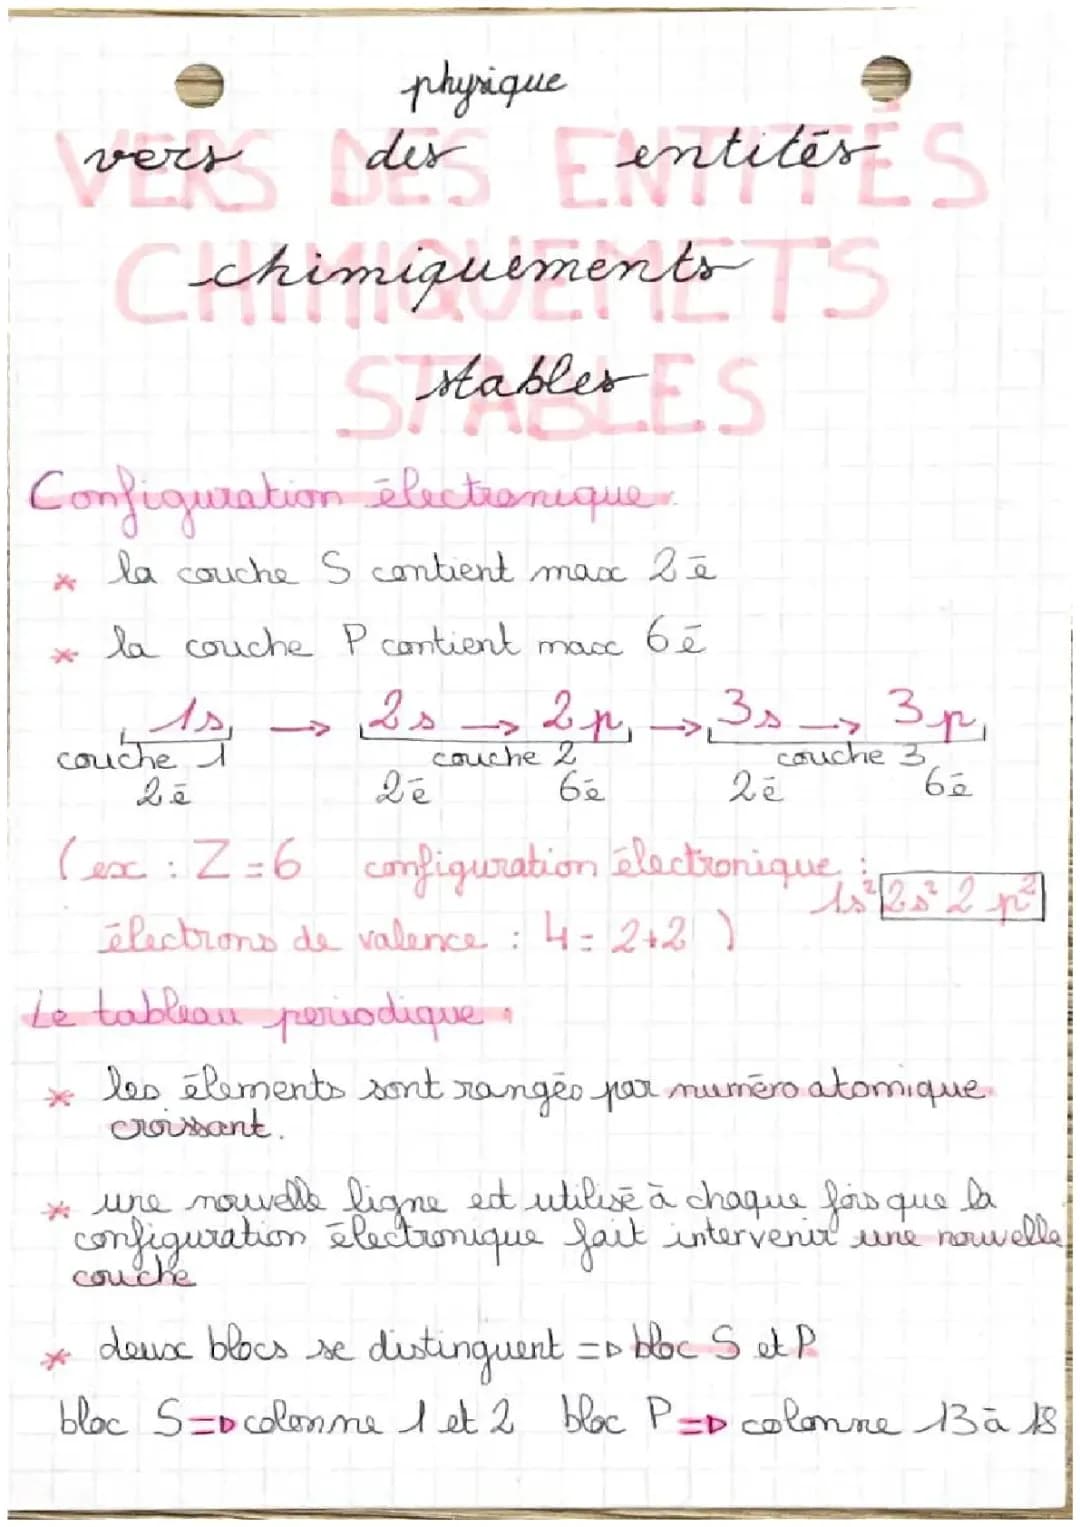 physique
VERS DES ENTITÉS
vers des entités
CHIMIQUEMETS
chimiquements
STABLES
stables
Configuration électronique:
* la couche S contient max 2ē
* la couche P contient max 6ē
1s → 2s → 2p → 3s → 3p
couche 1 couche 2 couche 3
2ē 2ē 6ē 2ē 6ē
(ex : Z=6 configuration électronique :
1s² 2s² 2p²
électrons de valence : 4 = 2+2 )
Le tableau periodique :
* les élements sont rangés par numéro atomique
croissant.
* une nouvelle ligne est utilisé à chaque fois que la
configuration électronique fait intervenir une nouvelle
couche
* deux blocs se distinguent => bloc S et P
bloc S => colonne 1 et 2 bloc P => colonne 13 à 18